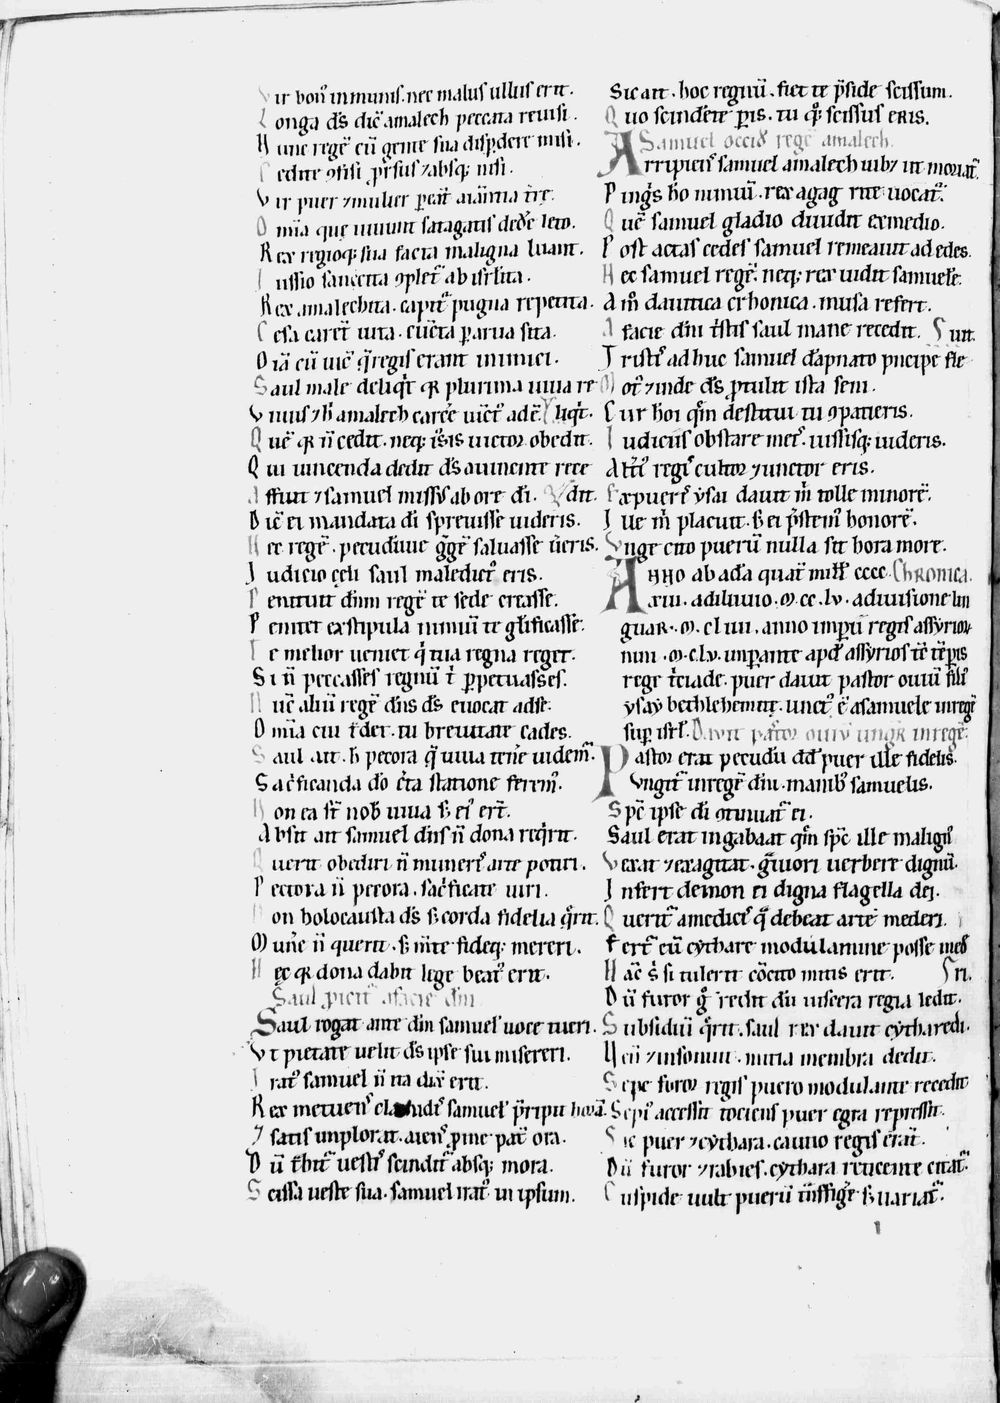 Vir bon᷒ inmunis. nec malus ullus erit.
Longa d̄s dic̄ amalech peccata reuisi.
Hunc regē cū gente sua disp̱dere misi.
Cedite ꝯfisi p̱rsus ⁊absq; nisi.
Vir puer ⁊mulier p̱eat
Omīa que uiuunt satagatis dedēe leto.
Rex regioq; sua facta maligna luant.
Iussio sanccita ꝯplet᷒ ab isrlita.
Rex amalechita. capit᷒ pugna repetita.
Cesa caret uita. cūcta p̱arua sita.
Oīa cū uic̄ q̄ regis erant inimici.
Saul male deliqͥt qͥ plurima uiua re
Vnius ⁊h̄ amalech carēe uict᷒ adē liqͥt.
Quē qͥ n̄ cedit. neq; iussis uictor obedit.
Qui uincenda dedit d̄s auincente rece
Affuit ⁊samuel missus ab ore d̄i. dit.
Dic̄ ei mandata d̄i spreuisse uideris.
Hec regē. pecudūue g̊gē saluasse uideris.
Iudicio celi saul maledict᷒ eris.
Penituit dn̄m regē te sede creasse.
Penitet exstipula nimiū te gl̄ificasse.
Te melior ueniet q̄ tua regna reget.
Si n̄ peccasses regnū t̄ p̱petuasses.
Nūc aliū regē dn̄s d̄s euocat adse.
Omīa cui t̄det. tu breuitate cades.
Saul ait. h̄ pecora q̄ uiua tenere uidem᷒.
Sac̄ficanda d̄o c̄ta statione ferem᷒.
Non ea st̄ nob uiua s; ei᷒ ert̄.
Absit ait samuel dn̄s n̄ dona reqͥrit.
Querit obediri n̄ muneris arte potiri.
Pectora n̄ pecora. sac̄ficate uiri.
Non holocausta d̄s s; corda fidelia qͥrit.
Munera n̄ querit. s; mīte fideq; mereri.
Hec qͥ dona dabit lege beat᷒ erit.
Saul proicit᷒ afacie dn̄i
Saul rogat ante dn̄m samuel uoce tueri.
Vt pietate uelit d̄s ipse sui misereri.
Irat᷒ samuel n̄ ita dix̄ erit.
Rex metuens samuel p̄ripit horā.
⁊ satis implorat. aiens p̱ me pat̄ ora.
Dū t̄hit᷒ uestis scindit᷒ absq; mora.
Scissa ueste sua. samuel irat᷒ in ipsum.
Sic ait. hoc regnū. fiet te p̄side scissum.
Quo scindēte p̱is. tu qͦ; scissus eris.
Samuel occid᷒ regē amalech.
Arripiens samuel amalech iubʒ ut moriat᷒.
Pingͥs hō nimiū. rex agag rite uocat᷒.
Quē samuel gladio diuidit exmedio.
Post actas cedes samuel remeauit ad edes.
Nec samuel regē. neq; rex uidit samuele.
Am̄ dauitica chronica. musa refert.
A facie dn̄i tristis saul mane recedit. unt.
Tristis adhuc samuel dāpnato pncipe fle
Mot᷒ ⁊inde d̄s p̱tulit ista seni.
Cur hoi qm̄ destitui tu ꝯpatieris.
Iudiciis obstare meis. iussisq; uideris.
Alt̄i᷒ regis cultor ⁊unctor eris.
Expueris ysai dauit m̄ tolle minorē.
Iste m̄ placuit. s; ei p̄stem᷒ honorē.
Vnge cito puerū nulla sit hora more.
Anno ab adā quat̄ mill̄ cccc. Chronica.
xiii. adiluuio. m. cc. lv. adiuisione lin
guar. m. cl iiii. anno imperii regis assyrior
nini. m. c.l.v. imperante apd᷒ assyrios tē tēp̱is
rege t̄ciade. puer dauit pastor ouiū fili᷒
ysay bethlehemite. unct᷒ ē asamuele inregē
sup̱ isrl. Dauit pastor ouiū ungit inregē.
Pastor erat pecudū dd̄ puer ille fidelis.
Vngit᷒ inregē dn̄i. manib᷒ samuelis.
Spc̄ ipse d̄i ꝯtinuat᷒ ei.
Saul erat ingabaat qm̄ spc̄ ille malign᷒
Vexat ⁊exagitat. g̊uiori uerbere dignū.
Infert demon ei digna flagella dei.
Querit᷒ amedicis q̄ debeat arte mederi.
Fert᷒ eū cythare modulamine posse med
Hac̄ si tulerit cōcito mitis erit. ri.
Dū furor g̊ redit dū uiscera regia ledit.
Subsidiū qͥrit. saul rex dauit cytharedi.
Qui ⁊insonuit. mitia membra dedit.
Sepe furor regis puero modulante recedit
Sepi᷒ accessit tociens puer egra repressit.
Sic puer ⁊cythara. cautio regis erat.
Dū furor ⁊rabies. cythara reticente citat᷒.
Cuspide uult puerū tn̄sfigē s; uariat᷒.